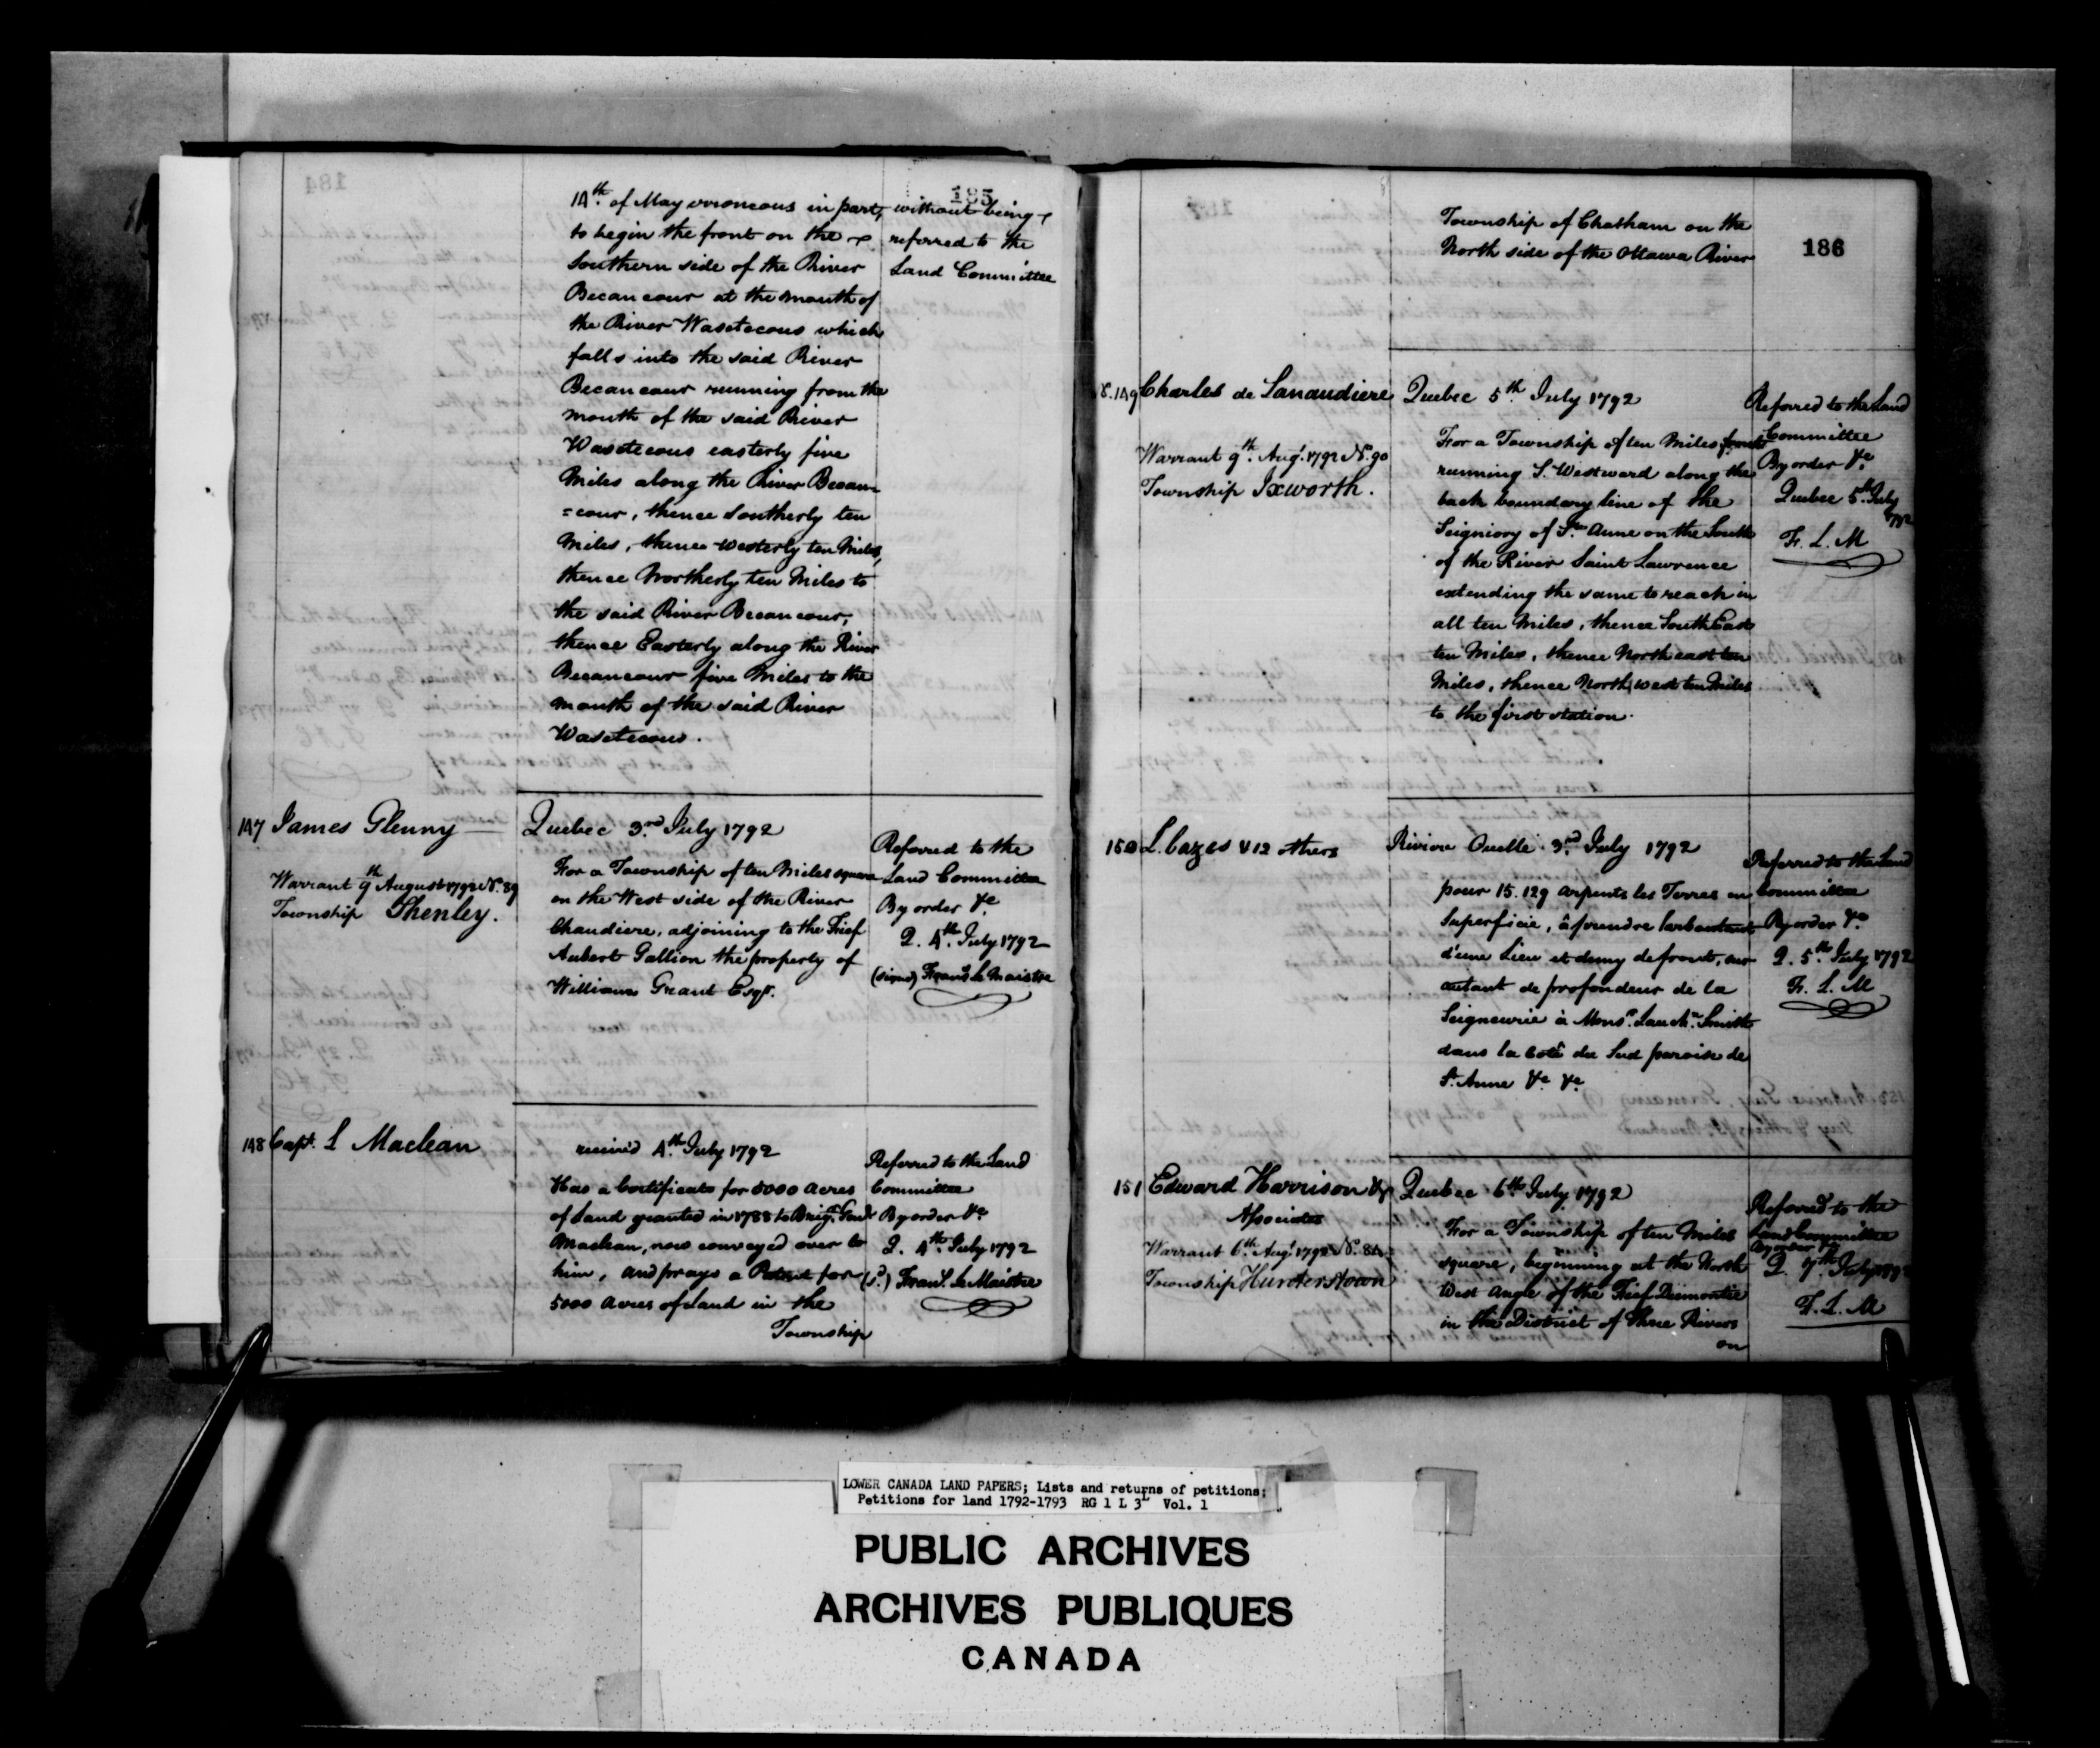 185
14th. of May erroneous in part, without being
to begin the front on the referred to the
Southern side of the River Land Committee
Becancour at the mouth of
the River Wasetecous which
falls into the said River
Becancour running from the
mouth of the said River
Wasetecous easterly five
Miles along the River Becan=
=cour, thence Southerly ten
Miles, thence Westerly ten Miles,
thence Northerly ten Miles to
the said River Becancour,
thence Easterly along the River
Becancour five Miles to the
mouth of the said River
Wasetecous.
147 James Glenny
Warrant 9th August 1792 No. 89
Township Shenley.
Quebec 3rd July 1792
For a Township of ten Miles square
on the West side of the River
Chaudiere, adjoining to the Fief
Aubert Gallion the property of
William Grant Esqr.
Referred to the
Land Committee
By order &c
Q. 4th. July 1792
(signed) Frans. Le Maistre
148 Capt. L Maclean
receiv'd 4th. July 1792
Has a Certificate for 5000 Acres
of Land granted in 1788 to Brigr. Genl
Maclean, now conveyed over to
him, and prays a Patent for
5000 Acres of Land in the
Township
Referred to the Land
Committee
By order &c
Q. 4th July 1792
(sd.) Frans. Le Maistre
Township of Chatham on the
North side of the Ottawa River
186
149 Charles de Lanaudiere
Warrant 9th. Augt. 1792 No. 90
Township Ixworth.
Quebec 5th July 1792
For a Township of ten Miles front
running S. Westward along the
back boundary line of the
Seigniory of St. Anne on the South
of the River Saint Lawrence
extending the same to reach in
all ten Miles, thence South East
ten Miles, thence North east ten
Miles, thence North west ten Miles
to the first station.
Referred to the Land
Committee
By order &c
Quebec 5th. July
1792
Fr. L. M
150 L. Cazes & 12 others
Riviere Ouelle 3rd July 1792
pour 15.129 Arpents les Terres en
Superficie, à prendre
d'une Lieu et demy de front, sur
autant de profondeur de la
Seigneurie à Monsr. Lauchn. Smith
dans la Coté du Sud paroise de
St. Anne &c &c
Referred to the Land
Committee
By order &c
Q. 5th July 1792
Fr. L. M
151 Edward Harrison &
Associates
Warrant 6th Augt. 1792 No.
Township Hunterstown
Quebec 6th July 1792
For a Township of ten Miles
square, beginning at the North
West angle of the Fief Dumontier
in the District of Three Rivers
on
Referred to the
Land Committee
By order &c
Q. 7th July 1792
F. L. M
LOWER CANADA LAND PAPERS; Lists and returns of petitions;
Petitions for land 1792-1793 RG 1 L 3L Vol. 1
PUBLIC ARCHIVES
ARCHIVES PUBLIQUES
CANADA